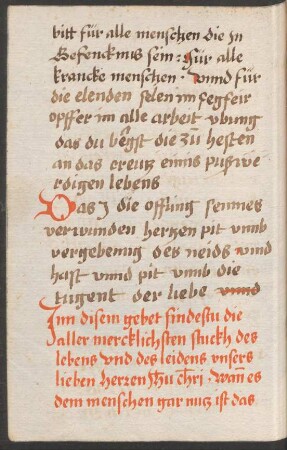 bitt für alle menschen die In
Gefencknus sein: Für alle
krancke menschen. vnnd für
die elenden selen im fegfeir
opffer im alle arbeit vbung
das du begst die zu heften
an das creutz einis pußwe
rdigen lebens
Das 3 die offling seunes
verwunden hertzen pit vmb
vergebenng des neids vnnd
hast vnnd pit vmb die
tugent der liebe vnnd
Inn disem gebet findestu die
aller mercklichsten stuckh des
lebens vnd des leidens vnsers
lieben herren Jhu chri. Wan es
dem menschen gar nutz ist das